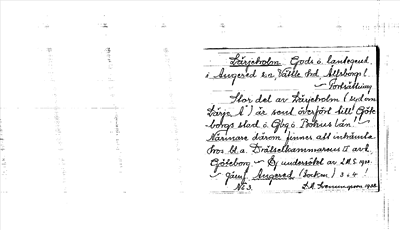 Lärjeholm. Gods o. lantegend.
i Angered sn, Vättle hd, Älfsborgs l.
~ Fortsättning
Stor del av Lärjeholm (S. om
Lärje å) är sent överfört till Göte
borgs stad o. Gbg o. Bohus län! ~
Närmare därom finnes att inhämta
hos bl. a. Drätselkammaren II avd.
Göteborg. ~ Ej undersökt av
~ Jämf. Angered (socken) 3 o 4 !
No 3.